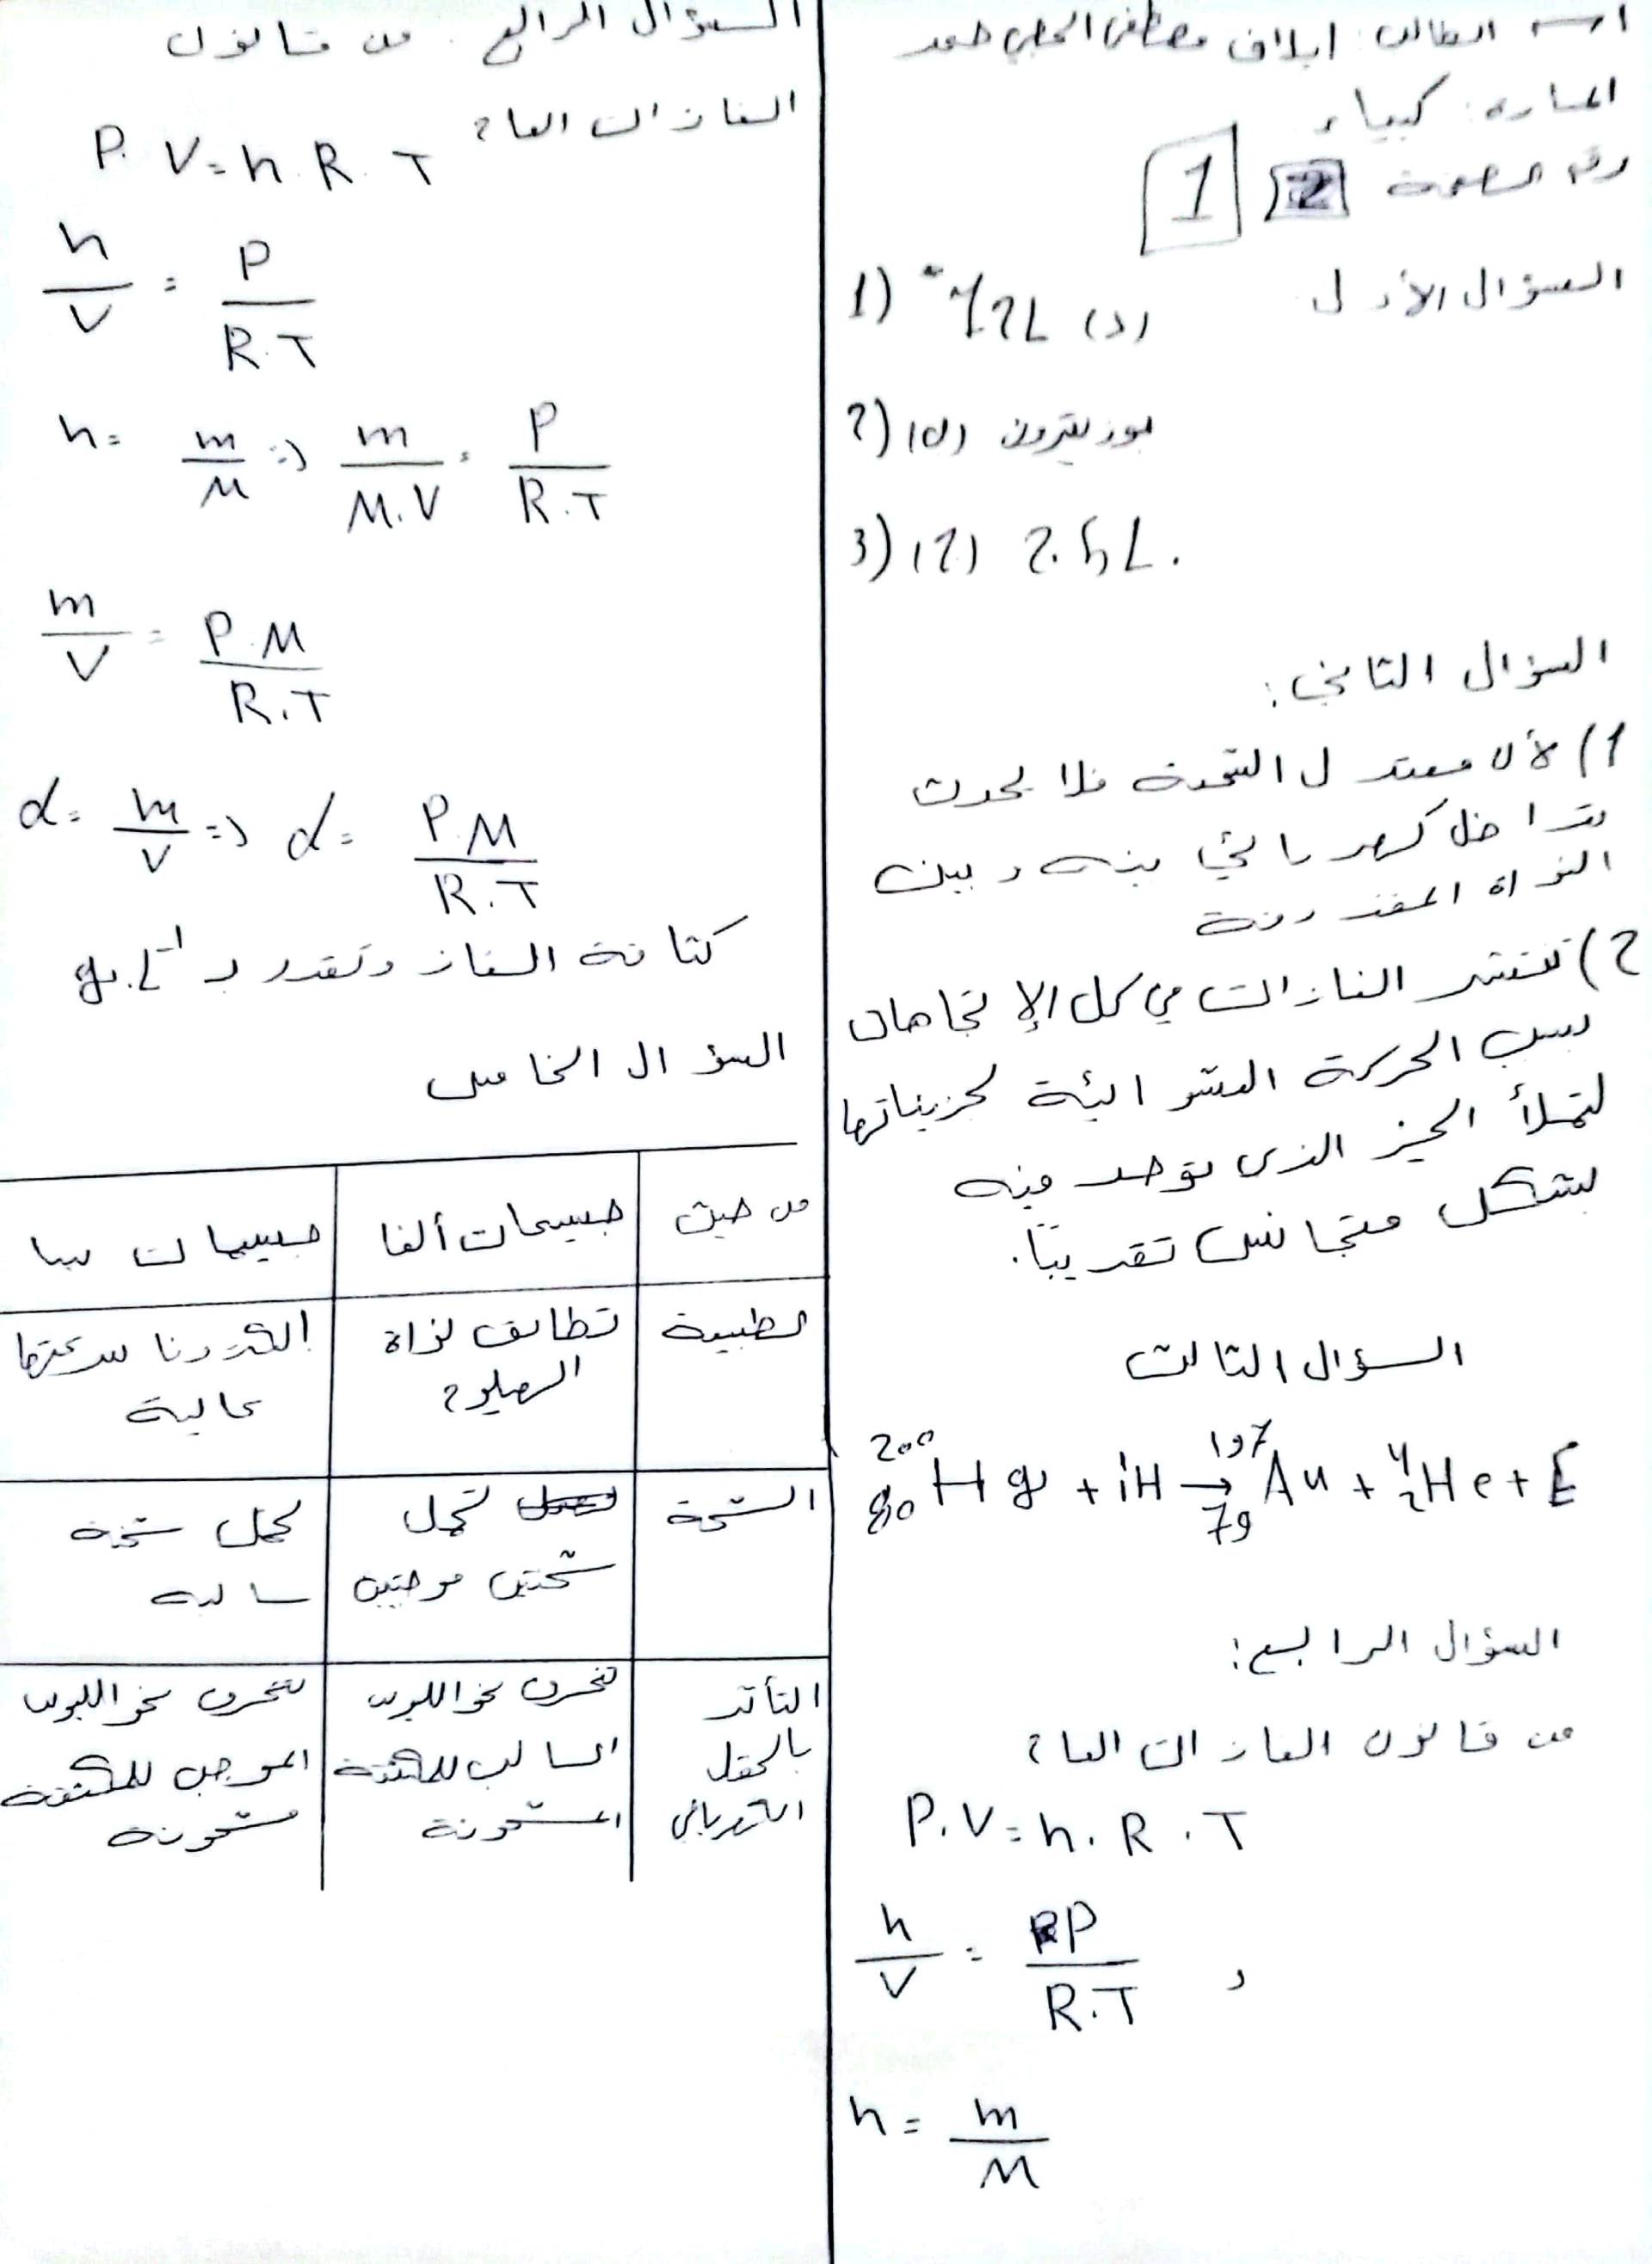 اسم الطالب: ايلاف مصطفى الحجي حمد
المادة: كيمياء
رقم الصفحة 1
السؤال الأول
1) (د)
2) (d) بوزيترون
3) (2) 2.5L.
السؤال الثاني:
1) لأن معتدل الشحنة فلا يحدث
تداخل كهربائي بينه وبين
النواة المقذوفة
2) تنتشر الغازات في كل الإتجاهات
بسبب الحركة العشوائية لجزيئاتها
لتملأ الحيز الذي توجد فيه
بشكل متجانس تقريباً.
السؤال الثالث
²⁰⁰₈₀Hg + ¹₁H → ¹⁹⁷₇₉Au + ⁴₂He + E
السؤال الرابع:
من قانون الغازات العام
P.V = n.R.T
n/V = P/R.T ,
n = m/M
السؤال الرابع. من قانون
الغازات العام P.V = n.R.T
n/V = P/R.T
n = m/M ⇒ m/M.V = P/R.T
m/V = P.M/R.T
d = m/V ⇒ d = P.M/R.T
كثافة الغاز وتقدر بـ g.L⁻¹
السؤال الخامس
من حيث جسيمات ألفا جسيمات بيتا
الطبيعة تطابق نواة الهيليوم إلكترونات سرعتها عالية
الشحنة تحمل شحنتين موجبتين تحمل شحنة سالبة
التأثر بالحقل الكهربائي تنحرف نحو اللبوس السالب للمكثفة المشحونة تنحرف نحو اللبوس الموجب للمكثفة مشحونة